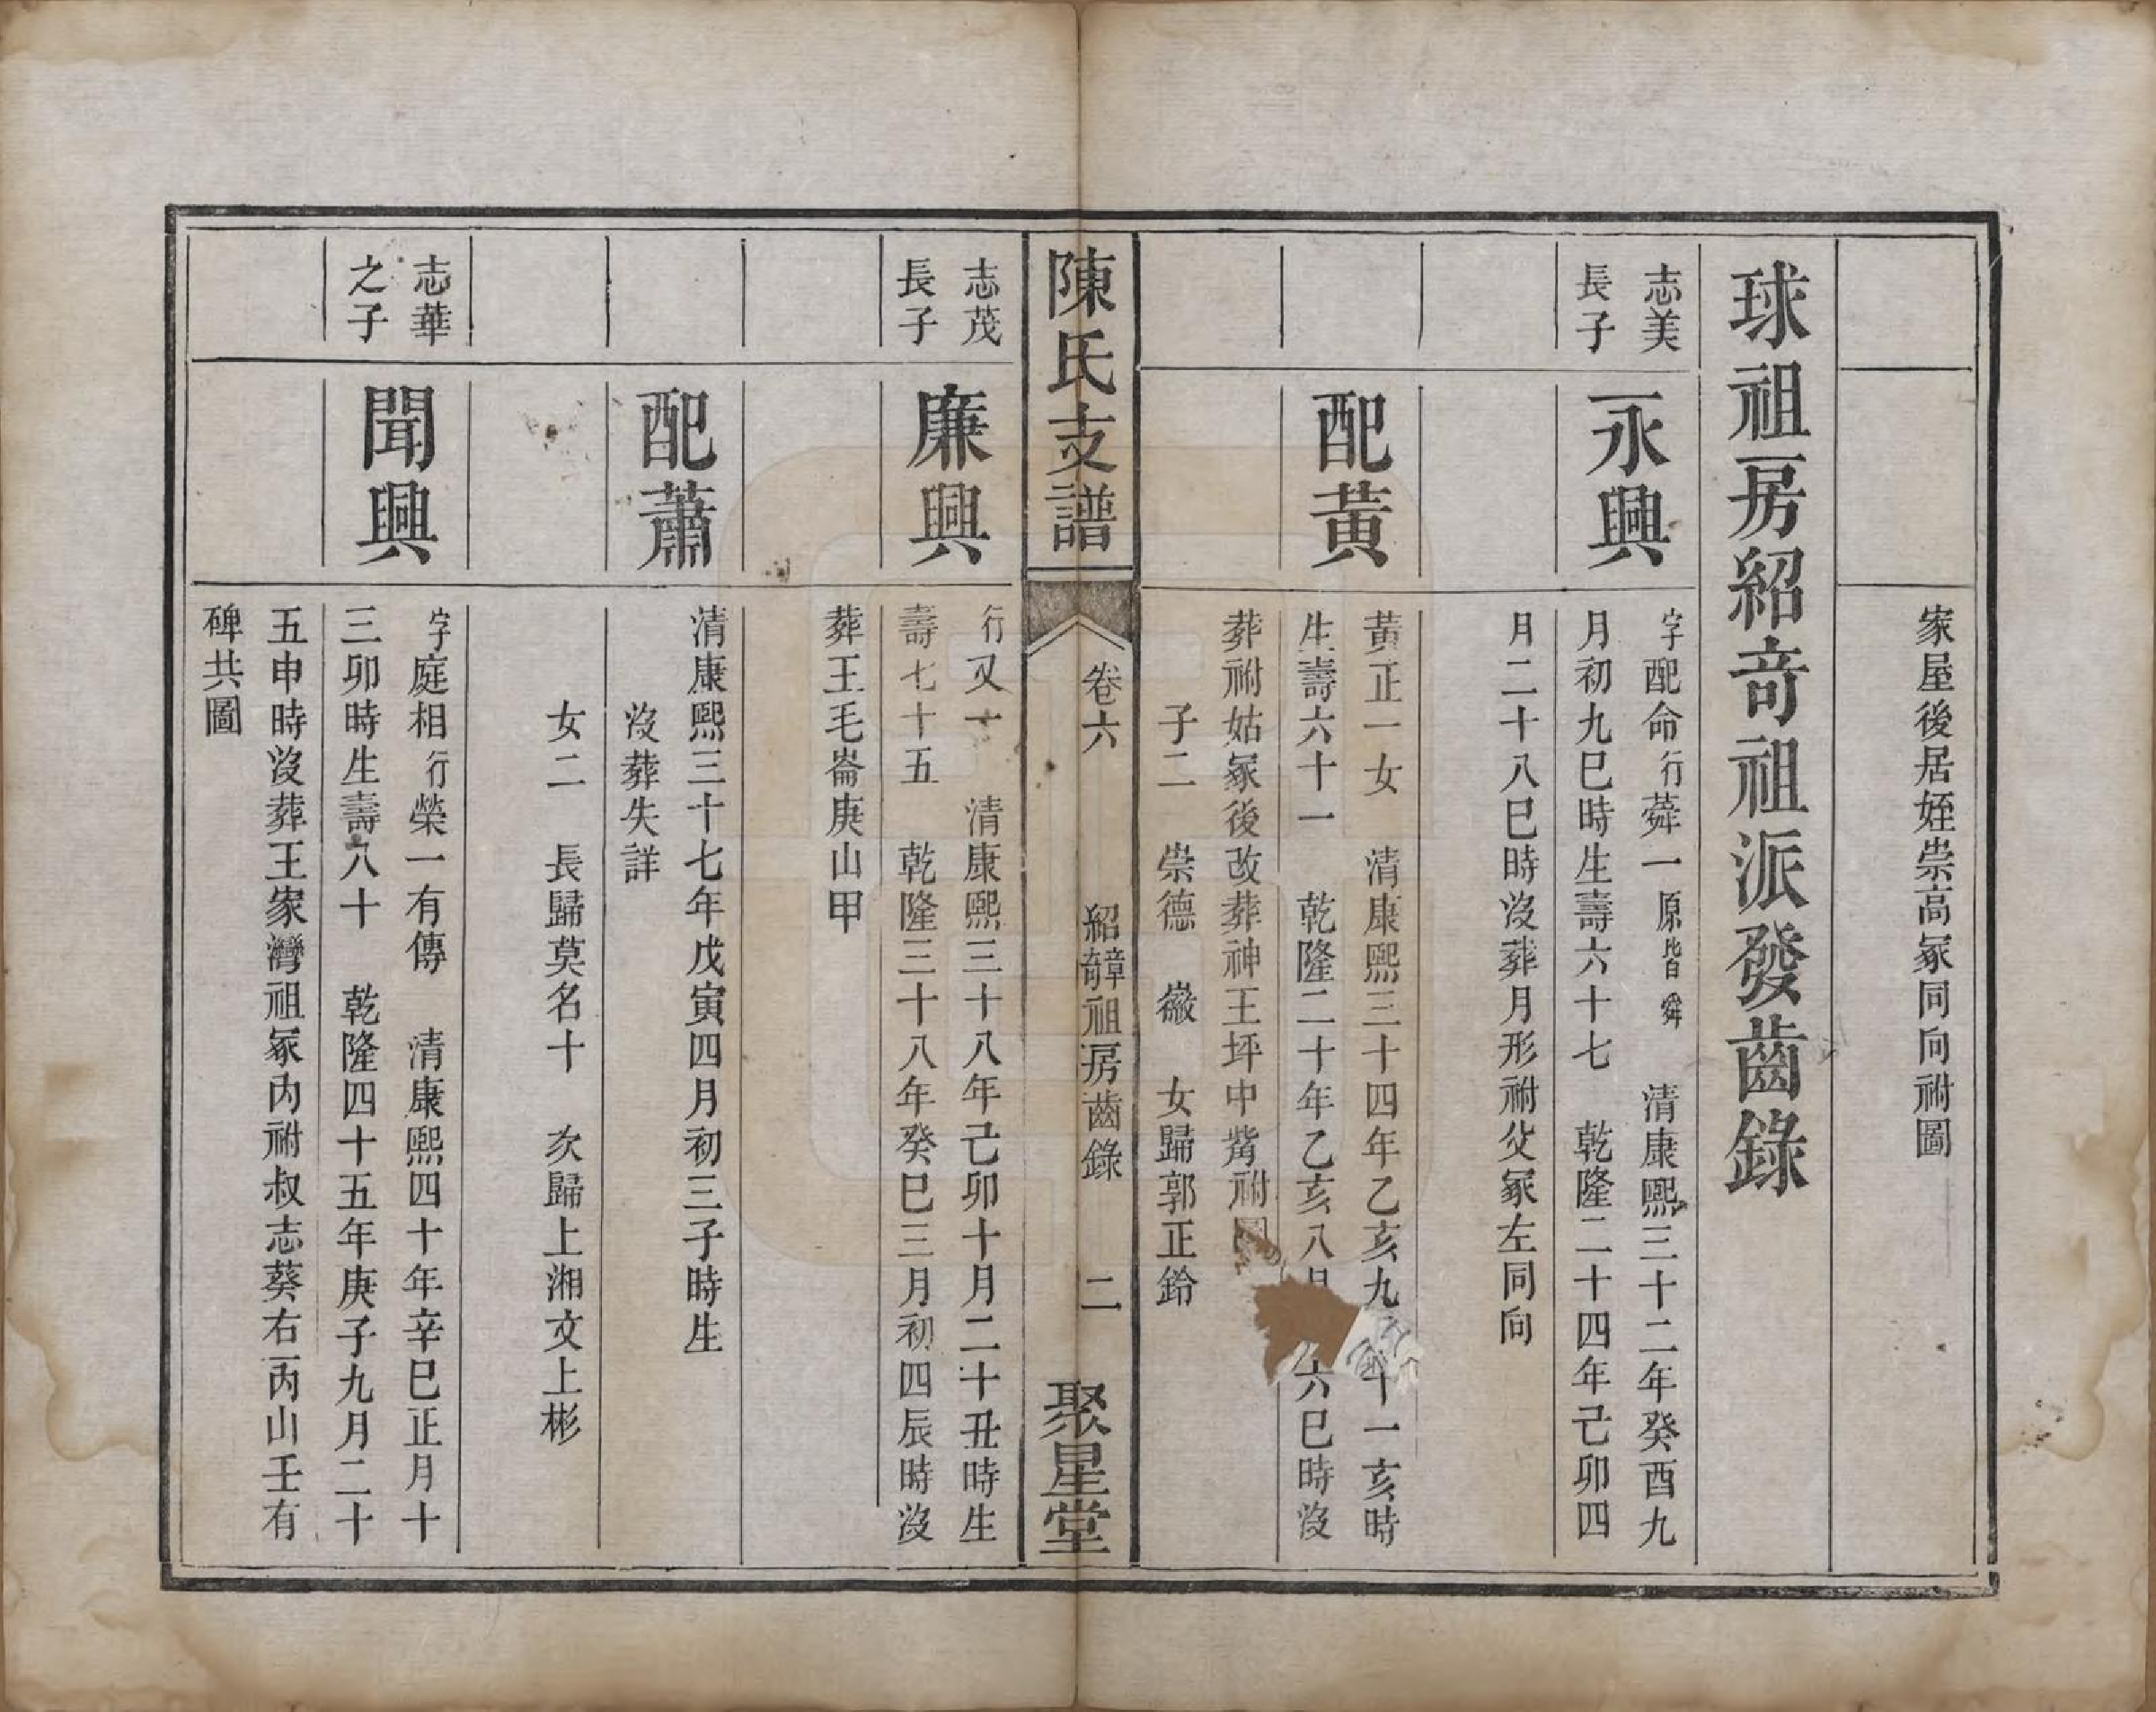 家屋後居姪崇高冢同向祔圖
球祖房紹奇祖派發齒錄
志美
長子
永興
字配命行蕣一原皆舜 清康熙三十二年癸酉九
月初九巳時生壽六十七 乾隆二十四年己卯四
月二十八巳時沒葬月形祔父冢左同向
配黃
黃正一女 清康熙三十四年乙亥九十一亥時
生壽六十一 乾隆二十年乙亥八月六巳時沒
葬祔姑冢後改葬神王坪中嘴祔
子二 崇德 巖 女歸郭正鈴
陳氏支譜
卷六
紹奇章祖房齒錄
二
聚星堂
志茂
長子
廉興
行又一 清康熙三十八年己卯十月二十丑時生
壽七十五 乾隆三十八年癸巳三月初四辰時沒
葬王毛崙庚山甲
配蕭
清康熙三十七年戊寅四月初三子時生
沒葬失詳
女二 長歸莫名十 次歸上湘文上彬
志華
之子
聞興
字庭相行榮一有傳 清康熙四十年辛巳正月十
三卯時生壽八十 乾隆四十五年庚子九月二十
五申時沒葬王家灣祖冢內祔叔志葵右丙山壬有
碑共圖